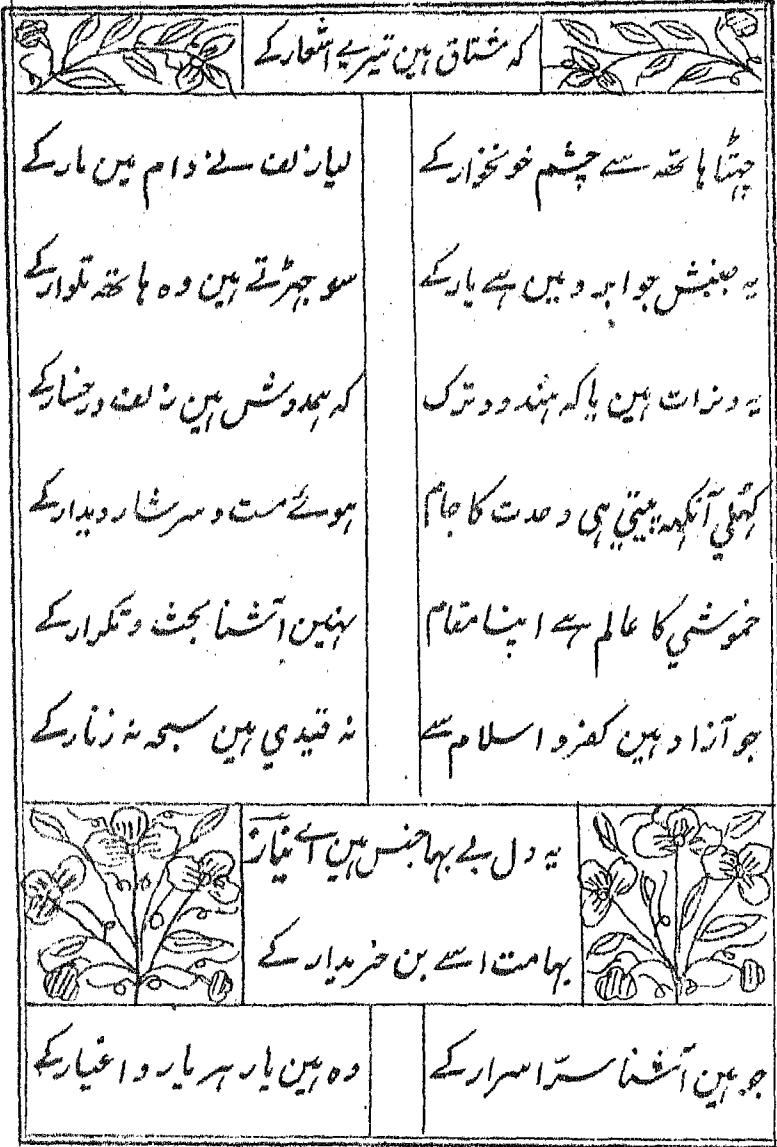 کہ مشتاق ہین تیرے اشعار کے
چہٹا ہاتھہ سے چشم خونخوار کے لیا زلف نے دام مین مار کے
یہ جنبش جو ابرو مین ہے یار کے سو جہڑتے ہین وہ ہاتھہ تلوار کے
یہ دنرات ہین یا کہ ہندو و ترک کہ ہمدوش ہین زلف و رخسار کے
کہلی آنکہہ پیتی ہی وحدت کا جام ہوئے مست و سرشار دیدار کے
خموشی کا عالم ہے اپنا مقام نہین آشنا بحث و تکرار کے
جو آزاد ہین کفر و اسلام سے نہ قیدی ہین سبحہ نہ زنار کے
یہ دل بے بہا جنس ہین اے نیاز
بہا مت اسے بن خریدار کے
جو ہین آشنا سرّ اسرار کے وہ ہین یار ہر یار و اغیار کے